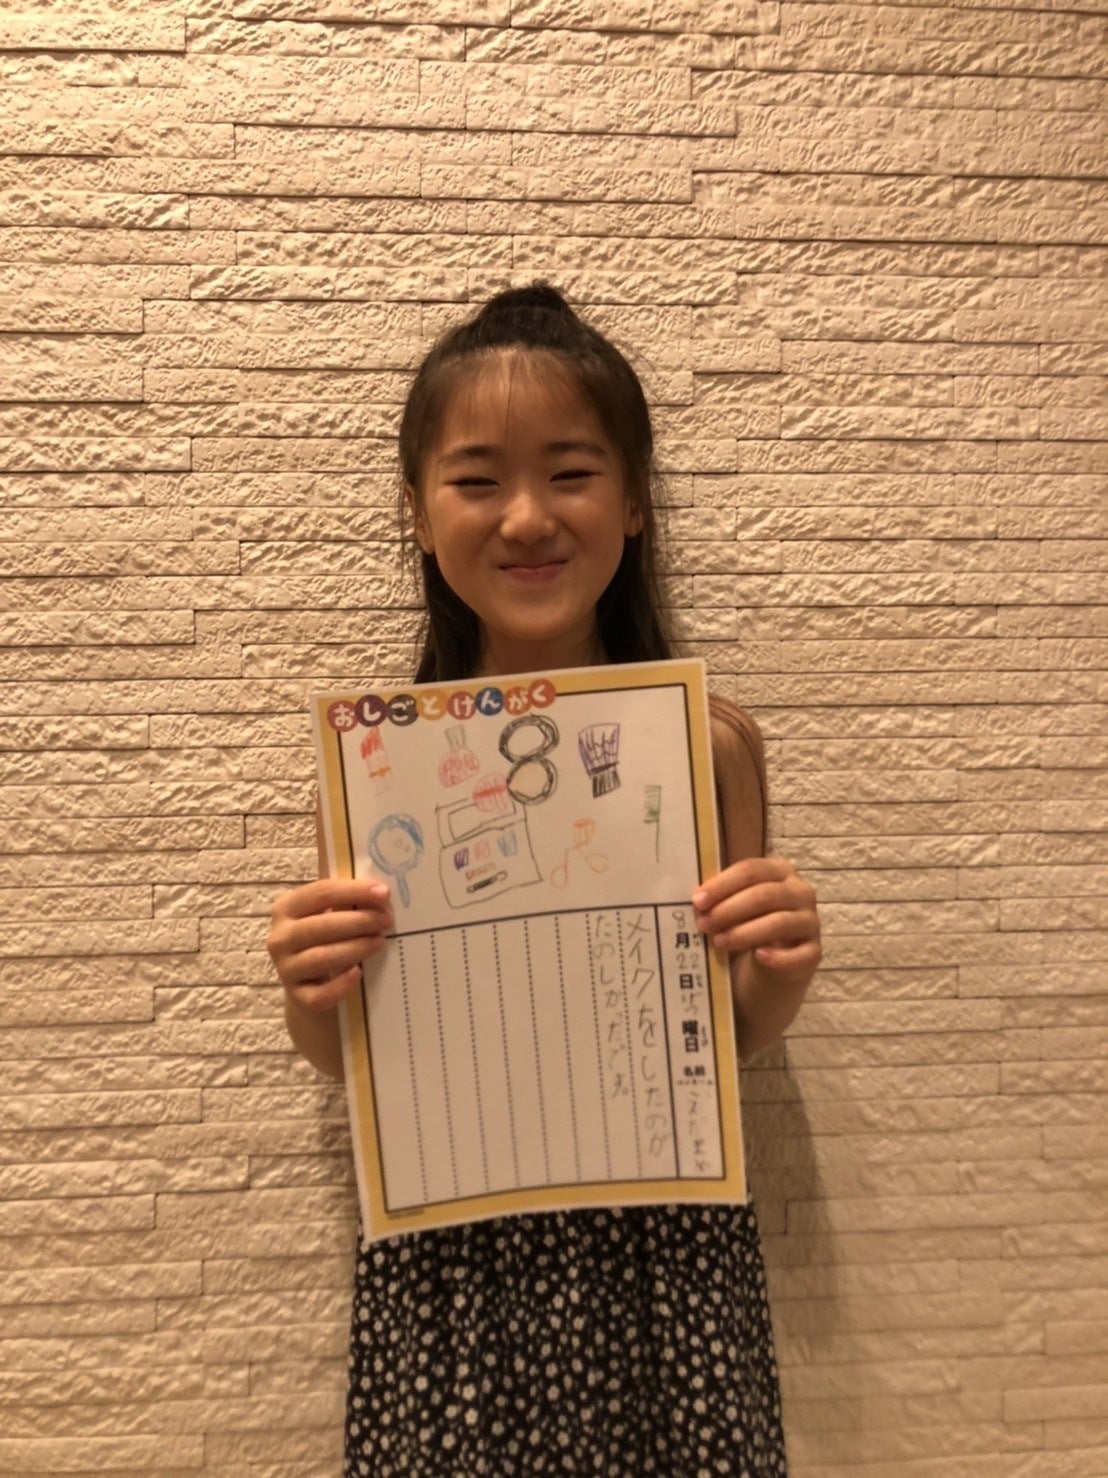 おしごとけんがく
8月22日げつ曜日 名前
メイクをしたのが
たのしかったです。